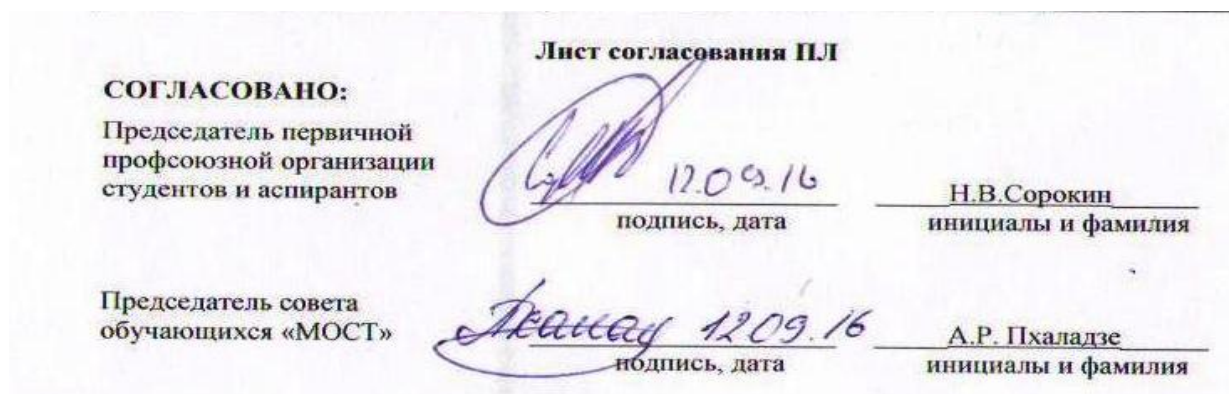 Лист согласования ПЛ
СОГЛАСОВАНО:
Председатель первичной
профсоюзной организации
студентов и аспирантов
12.09.16
Н.В.Сорокин
подпись, дата
инициалы и фамилия
Председатель совета
обучающихся «МОСТ»
12.09.16
А.Р. Пхаладзе
подпись, дата
инициалы и фамилия